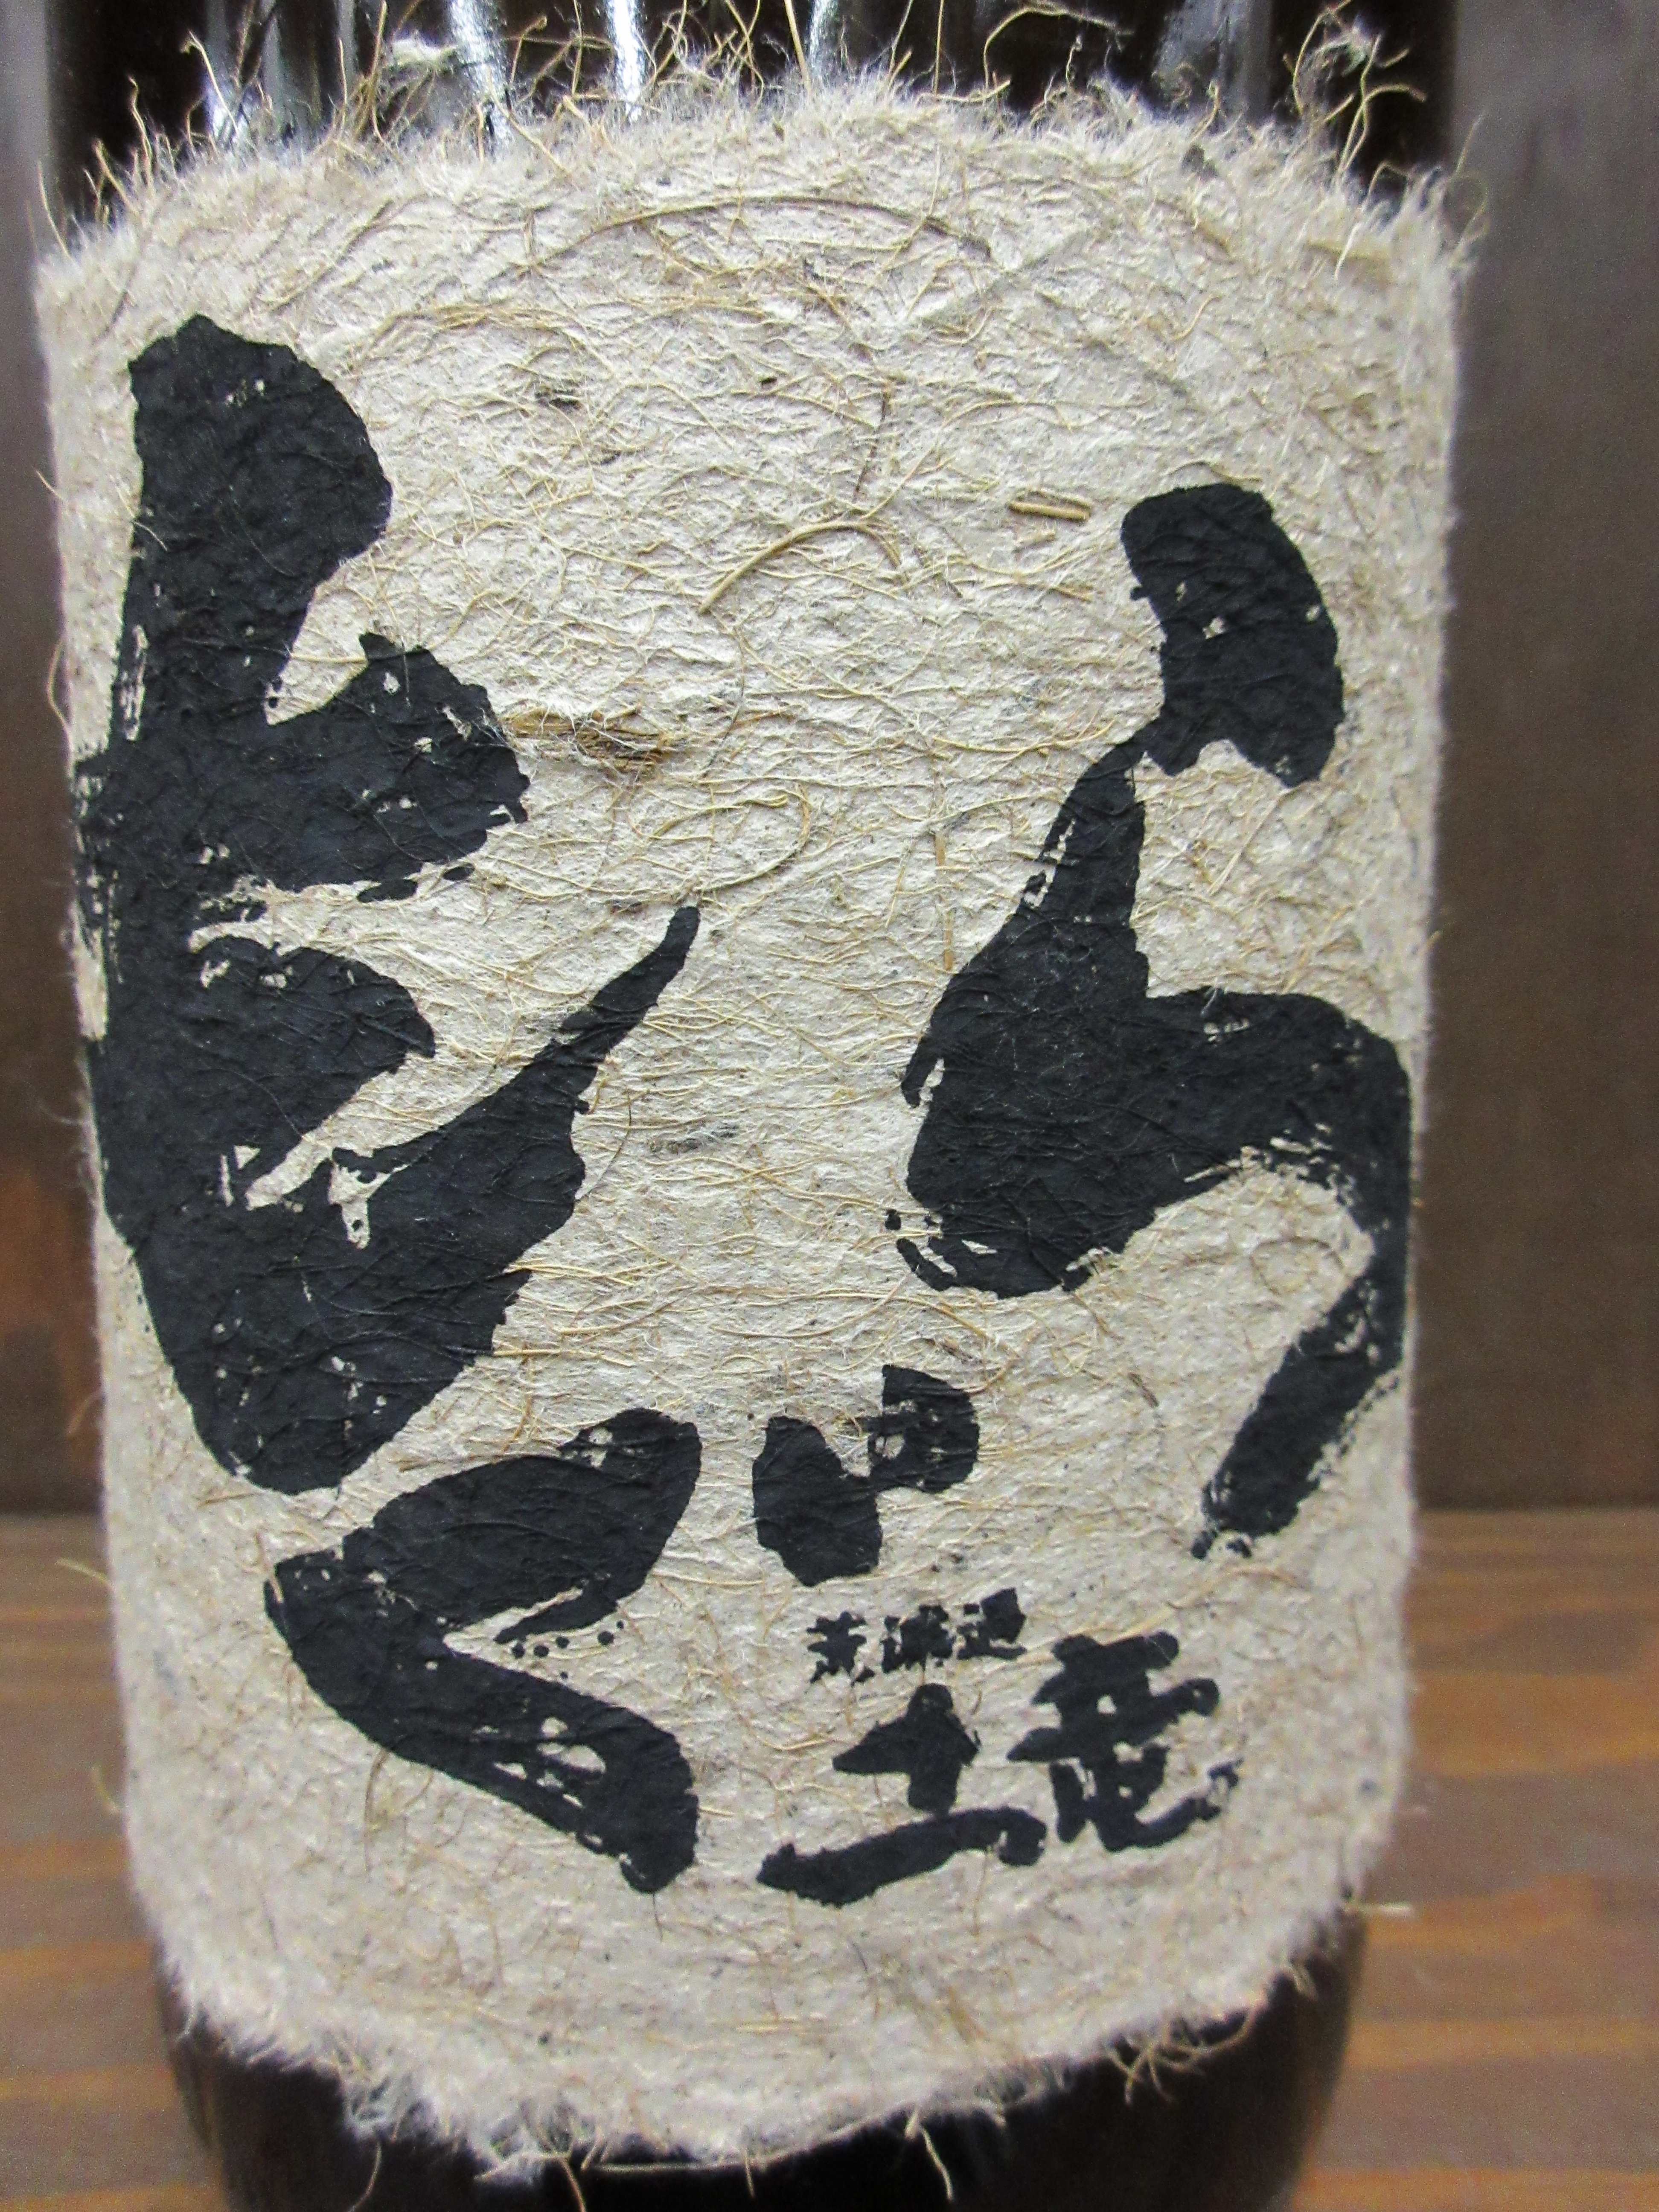 もぐら
荒濾過
土竜